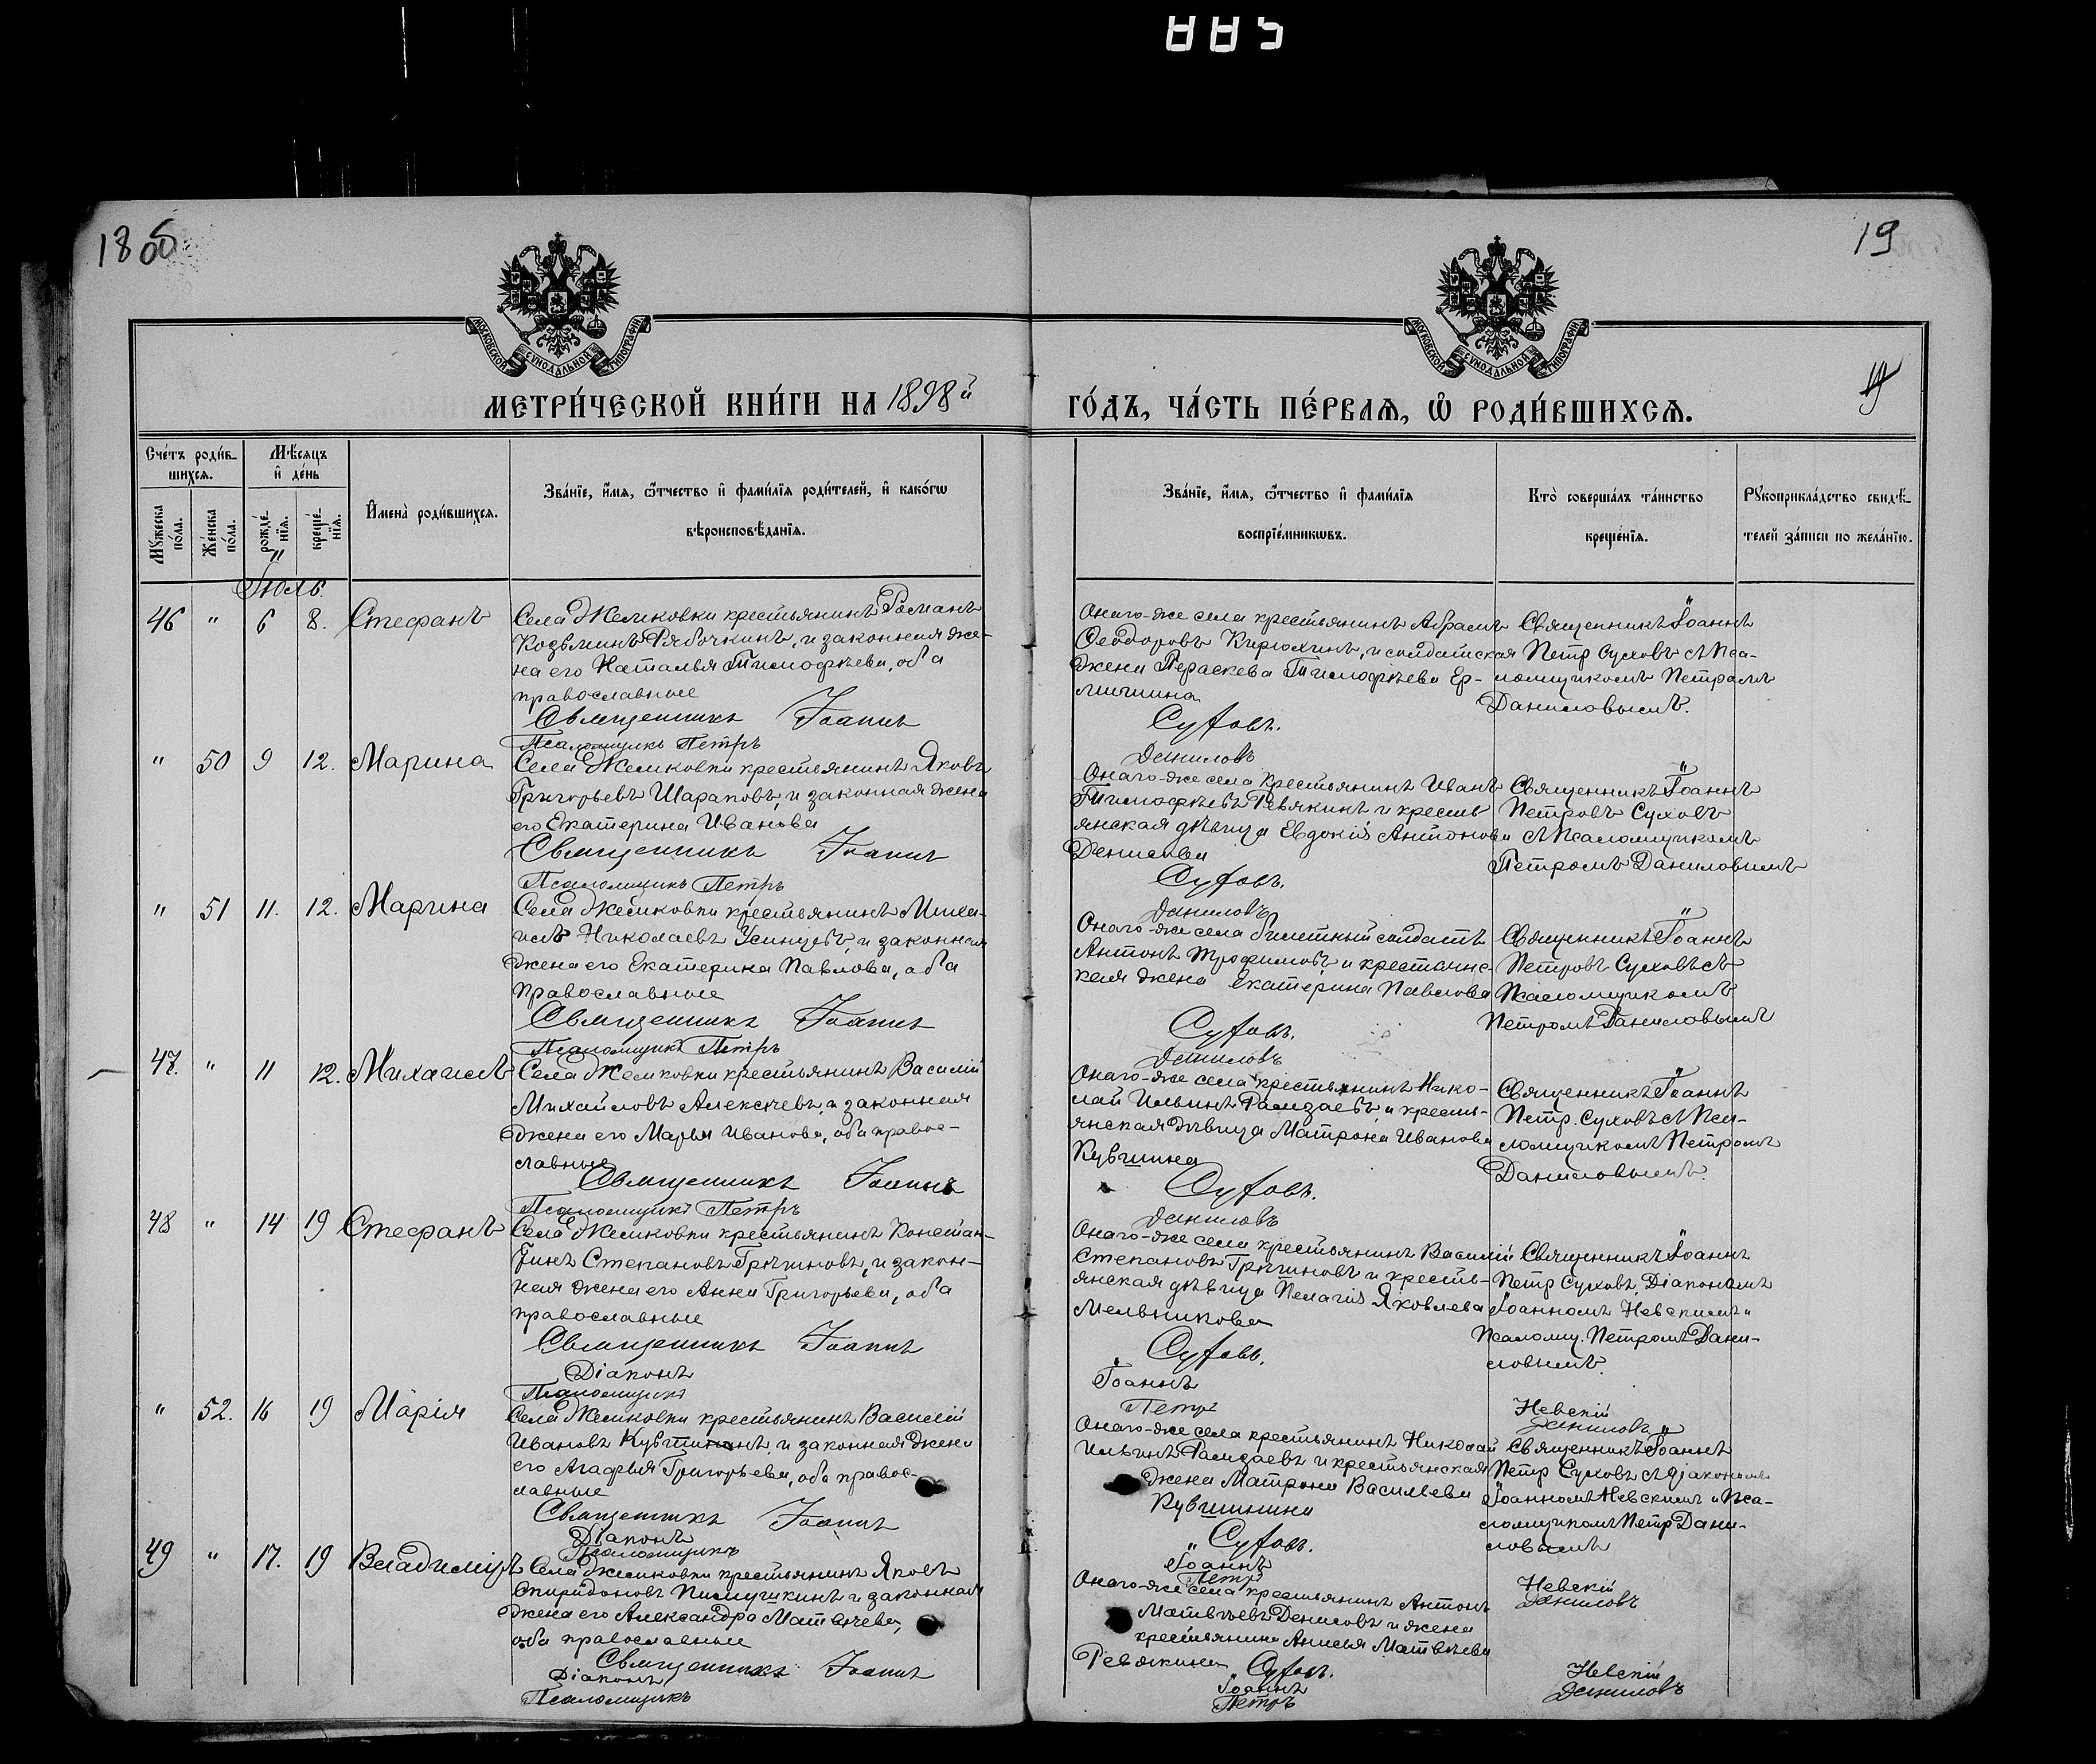 885
1806
19
МОСКОВСКОЙ СѴНОДАЛЬНОЙ ТИПОГРАФІИ
МОСКОВСКОЙ СѴНОДАЛЬНОЙ ТИПОГРАФІИ
19
МЕТРИ́ЧЕСКОЙ КНИ́ГИ НА 1898й
ГО́ДЪ, ЧА́СТЬ ПЕ́РВАѦ, Ѡ҆ РОДИ́ВШИХСѦ.
Сче́тъ роди́в-
шихсѧ.
Мѣ́сѧцъ
и҆ де́нь
Мꙋ́жеска
по́ла.
Же́нска
по́ла.
рожде́-
нїѧ.
креще́-
нїѧ.
И҆мена̀ роди́вшихсѧ.
Зва́нїе, и҆́мѧ, ѻ҆́тчество и҆ фами́лїѧ роди́телей, и҆ како́гѡ
вѣроисповѣ́данїѧ.
Зва́нїе, и҆́мѧ, ѻ҆́тчество и҆ фами́лїѧ
воспрїе́мникѡвъ.
Кто̀ соверша́лъ та́инство
креще́нїѧ.
Рꙋкоприкла́дство свидѣ́-
телей за́писи по жела́нїю.
Іюль.
46 " 6 8. Стефанъ
Села Желиковки крестьянинъ Романъ
Козьминъ Рябочкинъ, и законная же-
на его Наталья Тимофѣева, оба
православные
Священникъ Іоаннъ
Псаломщикъ Петръ
Онаго-же села крестьянинъ Абрамъ
Ѳеодоровъ Кирюхинъ, и солдатская
жена Параскева Тимофѣева Ер-
мишина
Суховъ.
Даниловъ
Священникъ Іоаннъ
Петр Суховъ съ Пса-
ломщикомъ Петромъ
Даниловымъ.
" 50 9 12. Марина
Села Желиковки крестьянинъ Яковъ
Григорьевъ Шараповъ, и законная жена
его Екатерина Иванова
Священникъ Іоаннъ
Псаломщикъ Петръ
Онаго-же села крестьянинъ Иванъ
Тимофѣевъ Ревякинъ и кресть
янская дѣвица Евдокія Антонова
Денисова
Суховъ.
Даниловъ
Священникъ Іоаннъ
Петровъ Суховъ
съ Псаломщикомъ
Петромъ Даниловымъ
" 51 11. 12. Марина
Села Желиковки крестьянинъ Миха-
илъ Николаевъ Усинцевъ, и законная
жена его Екатерина Павлова, оба
православные
Священникъ Іоаннъ
Псаломщикъ Петръ
Онаго-же села билетный солдатъ
Антонъ Трофимовъ, и крестьянс-
кая жена Екатерина Павлова
Суховъ.
Даниловъ
Священникъ Іоаннъ
Петровъ Суховъ съ
Псаломщикомъ
Петромъ Даниловымъ
47. " 11 12. Михаилъ
Села Желиковки крестьянинъ Василій
Михайловъ Алексѣевъ, и законная
жена его Марья Иванова, оба правос-
лавные
Священникъ Іоаннъ
Псаломщикъ Петръ
Онаго-же села крестьянинъ Нико-
лай Ильинъ Рамзаевъ, и кресть-
янская дѣвица Матрона Иванова
Кувшина
Суховъ.
Даниловъ
Священникъ Іоаннъ
Петр. Суховъ съ Пса-
ломщикомъ Петромъ
Даниловымъ.
48 " 14 19 Стефанъ
Села Желиковки крестьянинъ Констан-
тинъ Степановъ Грѣчиновъ, и закон-
ная жена его Анна Григорьева, оба
православные
Священникъ Іоаннъ
Діаконъ
Псаломщикъ
Онаго-же села крестьянинъ Василій
Степановъ Грѣчиновъ и кресть-
янская дѣвица Пелагія Яковлева
Мельникова
Суховъ.
Іоаннъ
Петръ
Священникъ Іоаннъ
Петр Суховъ, Діакономъ
Іоанномъ Невскимъ и
Псаломщ. Петромъ Дани-
ловымъ.
Невскій
Даниловъ
" 52. 16 19 Марія
Села Желиковки крестьянинъ Василій
Ивановъ Кувшининъ, и законная жена
его Агафья Григорьева, оба правос-
лавные
Священникъ Іоаннъ
Діаконъ
Псаломщикъ
Онаго-же села крестьянинъ Николай
Ильинъ Рамзаевъ и крестьянская
жена Матрона Васильева
Кувшинина
Суховъ.
Іоаннъ
Петръ
Священникъ Іоаннъ
Петр Суховъ съ діакономъ
Іоанномъ Невскимъ и Пса-
ломщикомъ Петр Дани-
ловымъ
Невскій
Даниловъ
49 " 17. 19 Владиміръ
Села Желиковки крестьянинъ Яковъ
Спиридоновъ Пилушкинъ и законная
жена его Александра Матвѣева,
оба православные
Священникъ Іоаннъ
Діаконъ
Псаломщикъ
Онаго-же села крестьянинъ Антонъ
Матвѣевъ Денисовъ и жена
крестьянина Анисья Матвѣева
Ревякина Суховъ.
Іоаннъ
Петръ
Невскій
Даниловъ